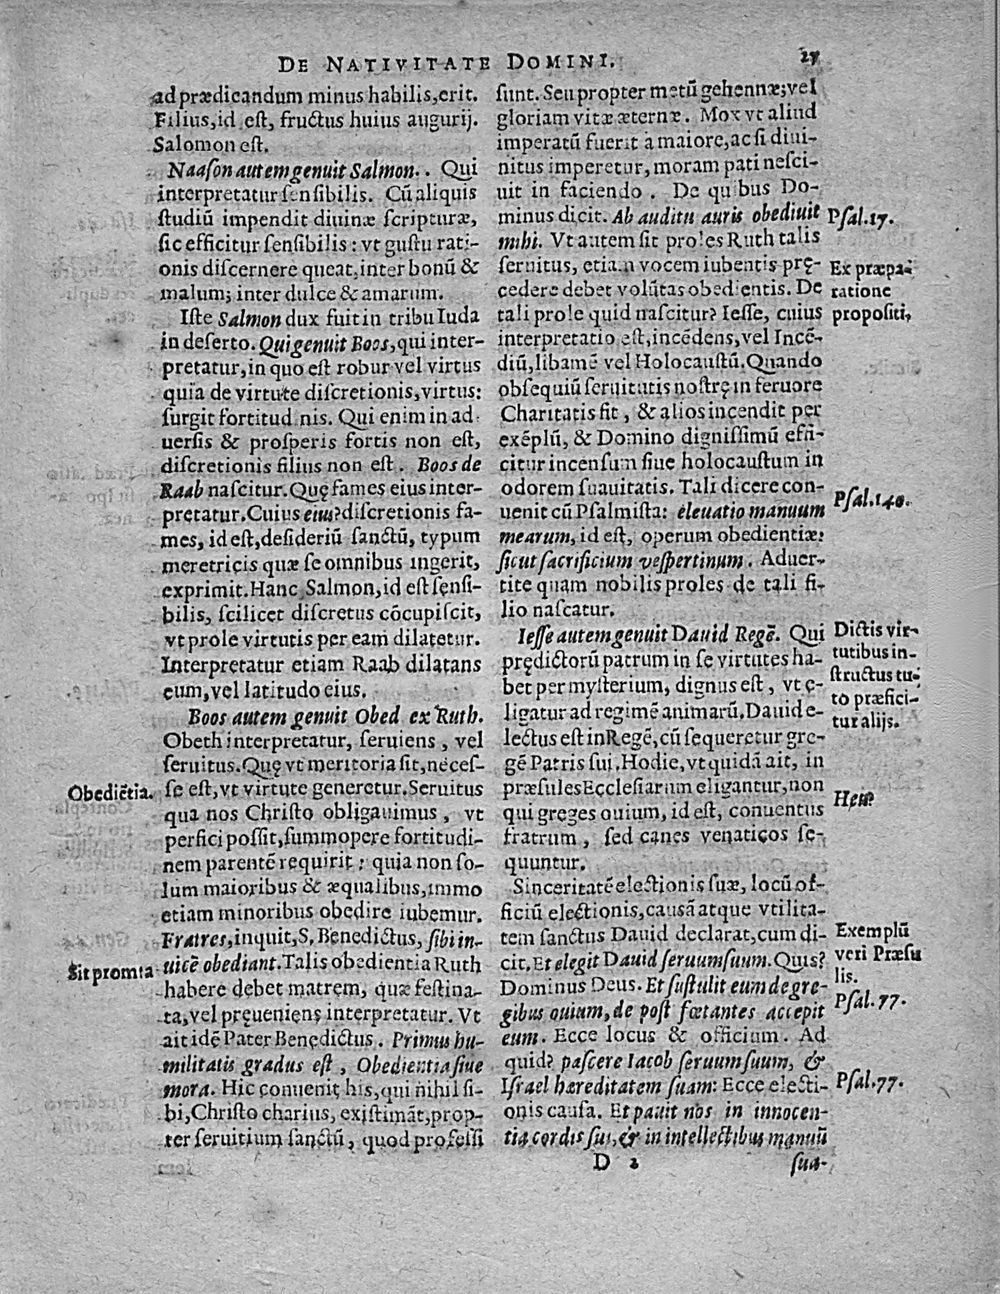 DE NATIVITATE DOMINI. 27
ad prædicandum minus habilis, erit.
Filius, id est, fructus huius augurij.
Salomon est.
Naason autem genuit Salmon.. Qui
interpretatur sensibilis. Cũ aliquis
studiũ impendit diuinæ scripturæ,
sic efficitur sensibilis: vt gustu rati-
onis discernere queat, inter bonũ &
malum; inter dulce & amarum.
Iste Salmon dux fuit in tribu Iuda
in deserto. Qui genuit Boos, qui inter-
pretatur, in quo est robur vel virtus
quia de virtute discretionis, virtus:
surgit fortitud nis. Qui enim in ad
uersis & prosperis fortis non est,
discretionis filius non est. Boos de
Raab nascitur. Quę fames eius inter-
pretatur. Cuius eius? discretionis fa-
mes, id est, desideriũ sanctũ, typum
meretricis quæ se omnibus ingerit,
exprimit. Hanc Salmon, id est sensi-
bilis, scilicet discretus cõcupiscit,
vt prole virtutis per eam dilatetur.
Interpretatur etiam Raab dilatans
eum, vel latitudo eius.
Boos autem genuit Obed ex Ruth.
Obeth interpretatur, seruiens, vel
seruitus. Quę vt meritoria sit, neces-
se est, vt virtute generetur. Seruitus
qua nos Christo obligauimus, vt
perfici possit, summopere fortitudi-
nem parentẽ requirit; quia non so-
lum maioribus & æqualibus, immo
etiam minoribus obedire iubemur.
Fratres, inquit, S. Benedictus, sibi in-
uicẽ obediant. Talis obedientia Ruth
habere debet matrem, quæ festina-
ta, vel pręueniens interpretatur. Vt
ait idẽ Pater Benedictus. Primus hu-
militatis gradus est, Obedientia siue
mora. Hic conuenit his, qui nihil si-
bi, Christo charius, existimãt, prop-
ter seruitium sanctũ, quod professi
Obediẽtia.
Sit promta
sunt. Seu propter metũ gehennæ; vel
gloriam vitæ æternæ. Mox vt aliud
imperatũ fuerit a maiore, ac si diui-
nitus imperetur, moram pati nesci-
uit in faciendo. De quibus Do-
minus dicit. Ab auditu auris obediuit
mihi. Vt autem sit proles Ruth talis
seruitus, etiam vocem iubentis pre̜-
cedere debet volũtas obedientis. De
tali prole quid nascitur? Iesse, cuius
interpretatio est, incẽdens, vel Incẽ-
diũ, libamẽ vel Holocaustũ. Quando
obsequiũ seruitutis nostrę in feruore
Charitatis fit, & alios incendit per
exẽplũ, & Domino dignissimũ effi-
citur incensum siue holocaustum in
odorem suauitatis. Tali dicere con-
uenit cũ Psalmista: eleuatio manuum
mearum, id est, operum obedientiæ:
sicut sacrificium vespertinum. Aduer-
tite quam nobilis proles de tali fi-
lio nascatur.
Iesse autem genuit Dauid Regẽ. Qui
pre̜dictorũ patrum in se virtutes ha-
bet per mysterium, dignus est, vt e-
ligatur ad regimẽ animarũ. Dauid e-
lectus est in Regẽ, cũ sequeretur gre-
gẽ Patris sui. Hodie, vt quidã ait, in
præsules Ecclesiarum eligantur, non
qui greges ouium, id est, conuentus
fratrum, sed canes venaticos se-
quuntur.
Sinceritatẽ electionis suæ, locũ of-
ficiũ electionis, causã atque vtilita-
tem sanctus Dauid declarat, cum di-
cit. Et elegit Dauid seruum suum. Quis?
Dominus Deus. Et sustulit eum de gre-
gibus ouium, de post fœtantes accepit
eum. Ecce locus & officium. Ad
quid? pascere Iacob seruum suum, &
Israel hæreditatem suam: Ecce electi-
onis causa. Et pauit nos in innocen-
tia cordis sui, & in intellectibus manuũ
Psal. 17.
Ex præpa-
ratione
propositi,
Psal. 140.
Dictis vir-
tutibus in-
structus tu-
to præfici-
tur alijs.
Heu?
Exemplũ
veri Præsu
lis.
Psal. 77.
Psal. 77.
D 2
sua-